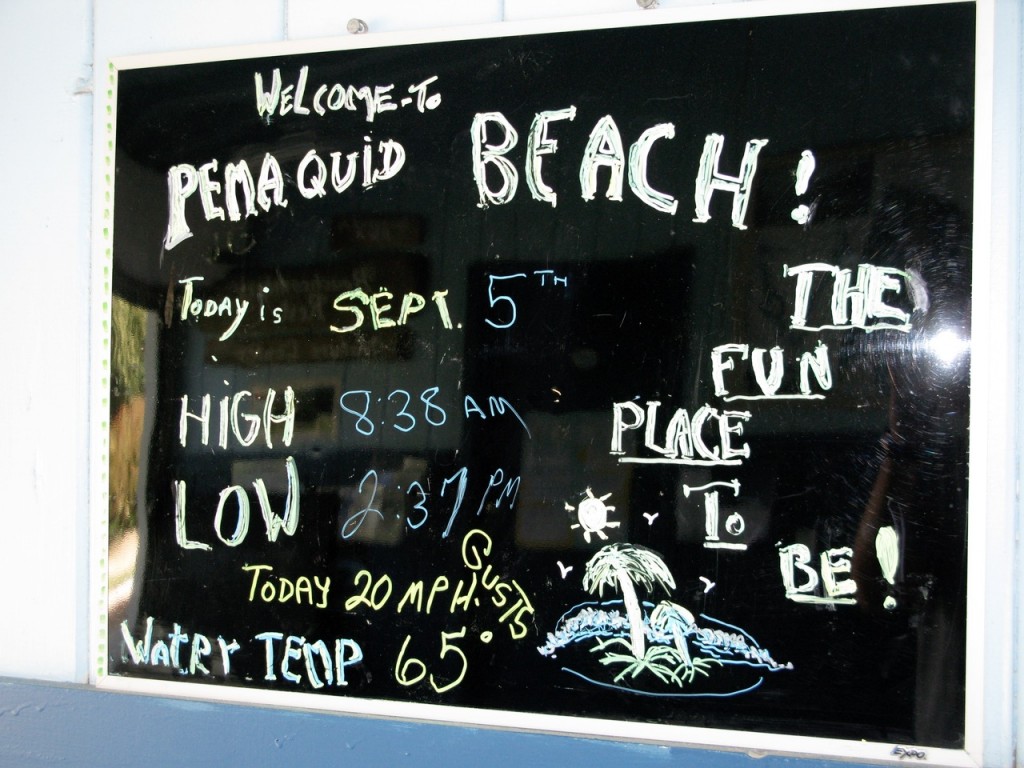 WELCOME-TO
PEMAQUID BEACH!
TODAY is SEPT. 5TH
HIGH 8:38 AM
LOW 2:37 PM
TODAY 20 MPH. GUSTS
WATER TEMP 65°
THE
FUN
PLACE
TO
BE!
EXPO